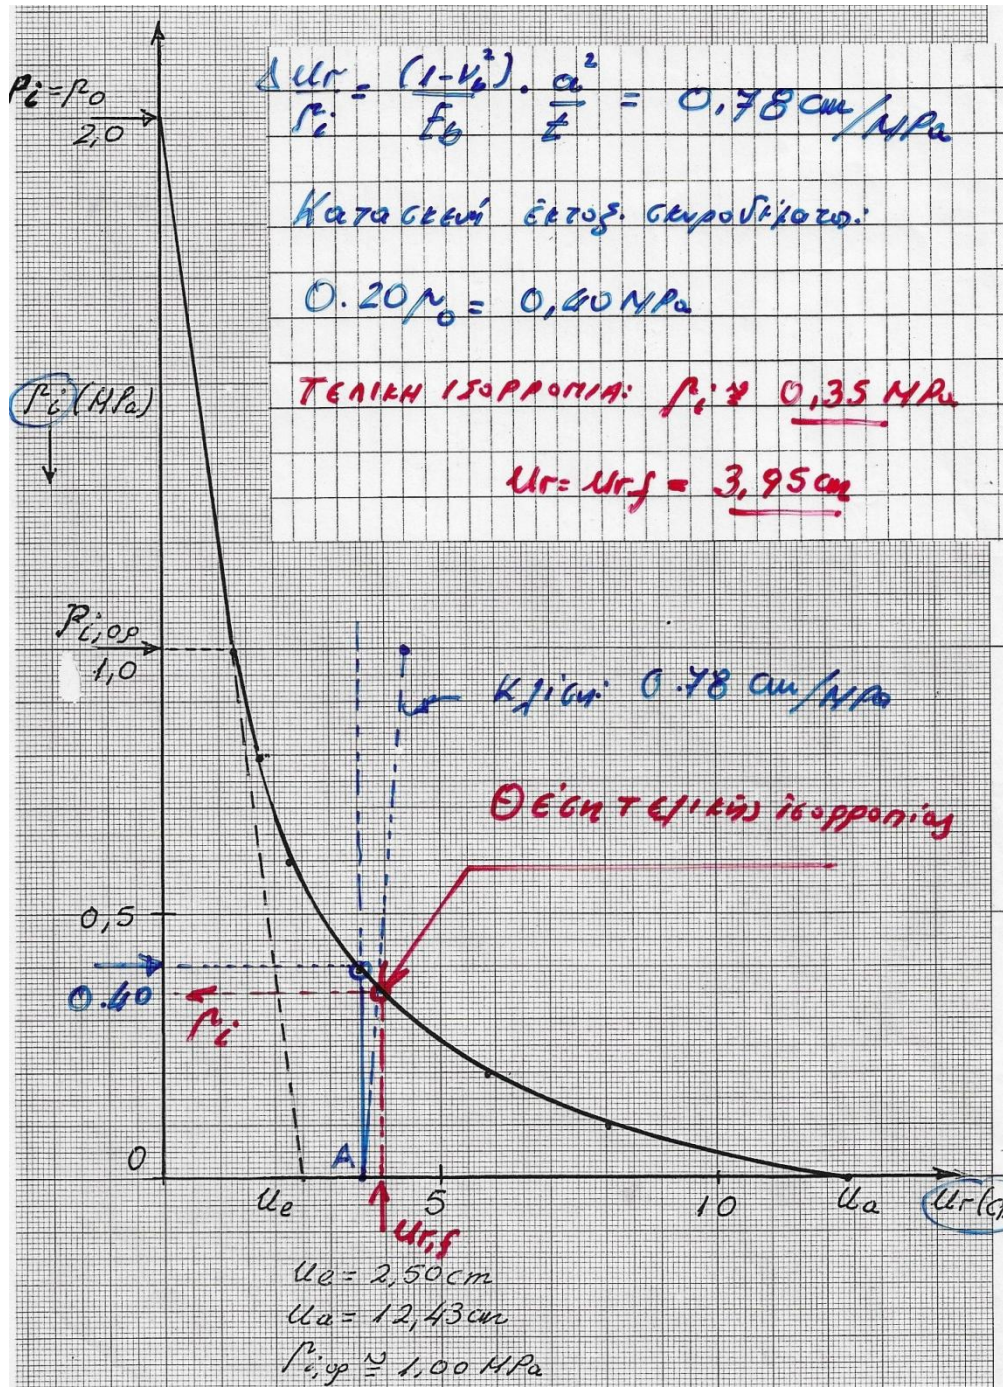 Pi = Po
2,0
Δur/Pi = (1-νb²)/Eb · a²/t = 0,78 cm/MPa
Κατασκευή έκτοξ. σκυροδέματος:
0.20 Po = 0,40 MPa
Pi (MPa)
ΤΕΛΙΚΗ ΙΣΟΡΡΟΠΙΑ: Pi ≈ 0,35 MPa
ur = ur,f = 3,95 cm
Pi,op
1,0
Κλίση 0.78 cm/MPa
Θέση τελικής ἰσορροπίας
0,5
0.40
Pi
0
A
ue
5
10
ua
ur,f
ue = 2,50 cm
ua = 12,43 cm
Pi,op ≅ 1,00 MPa